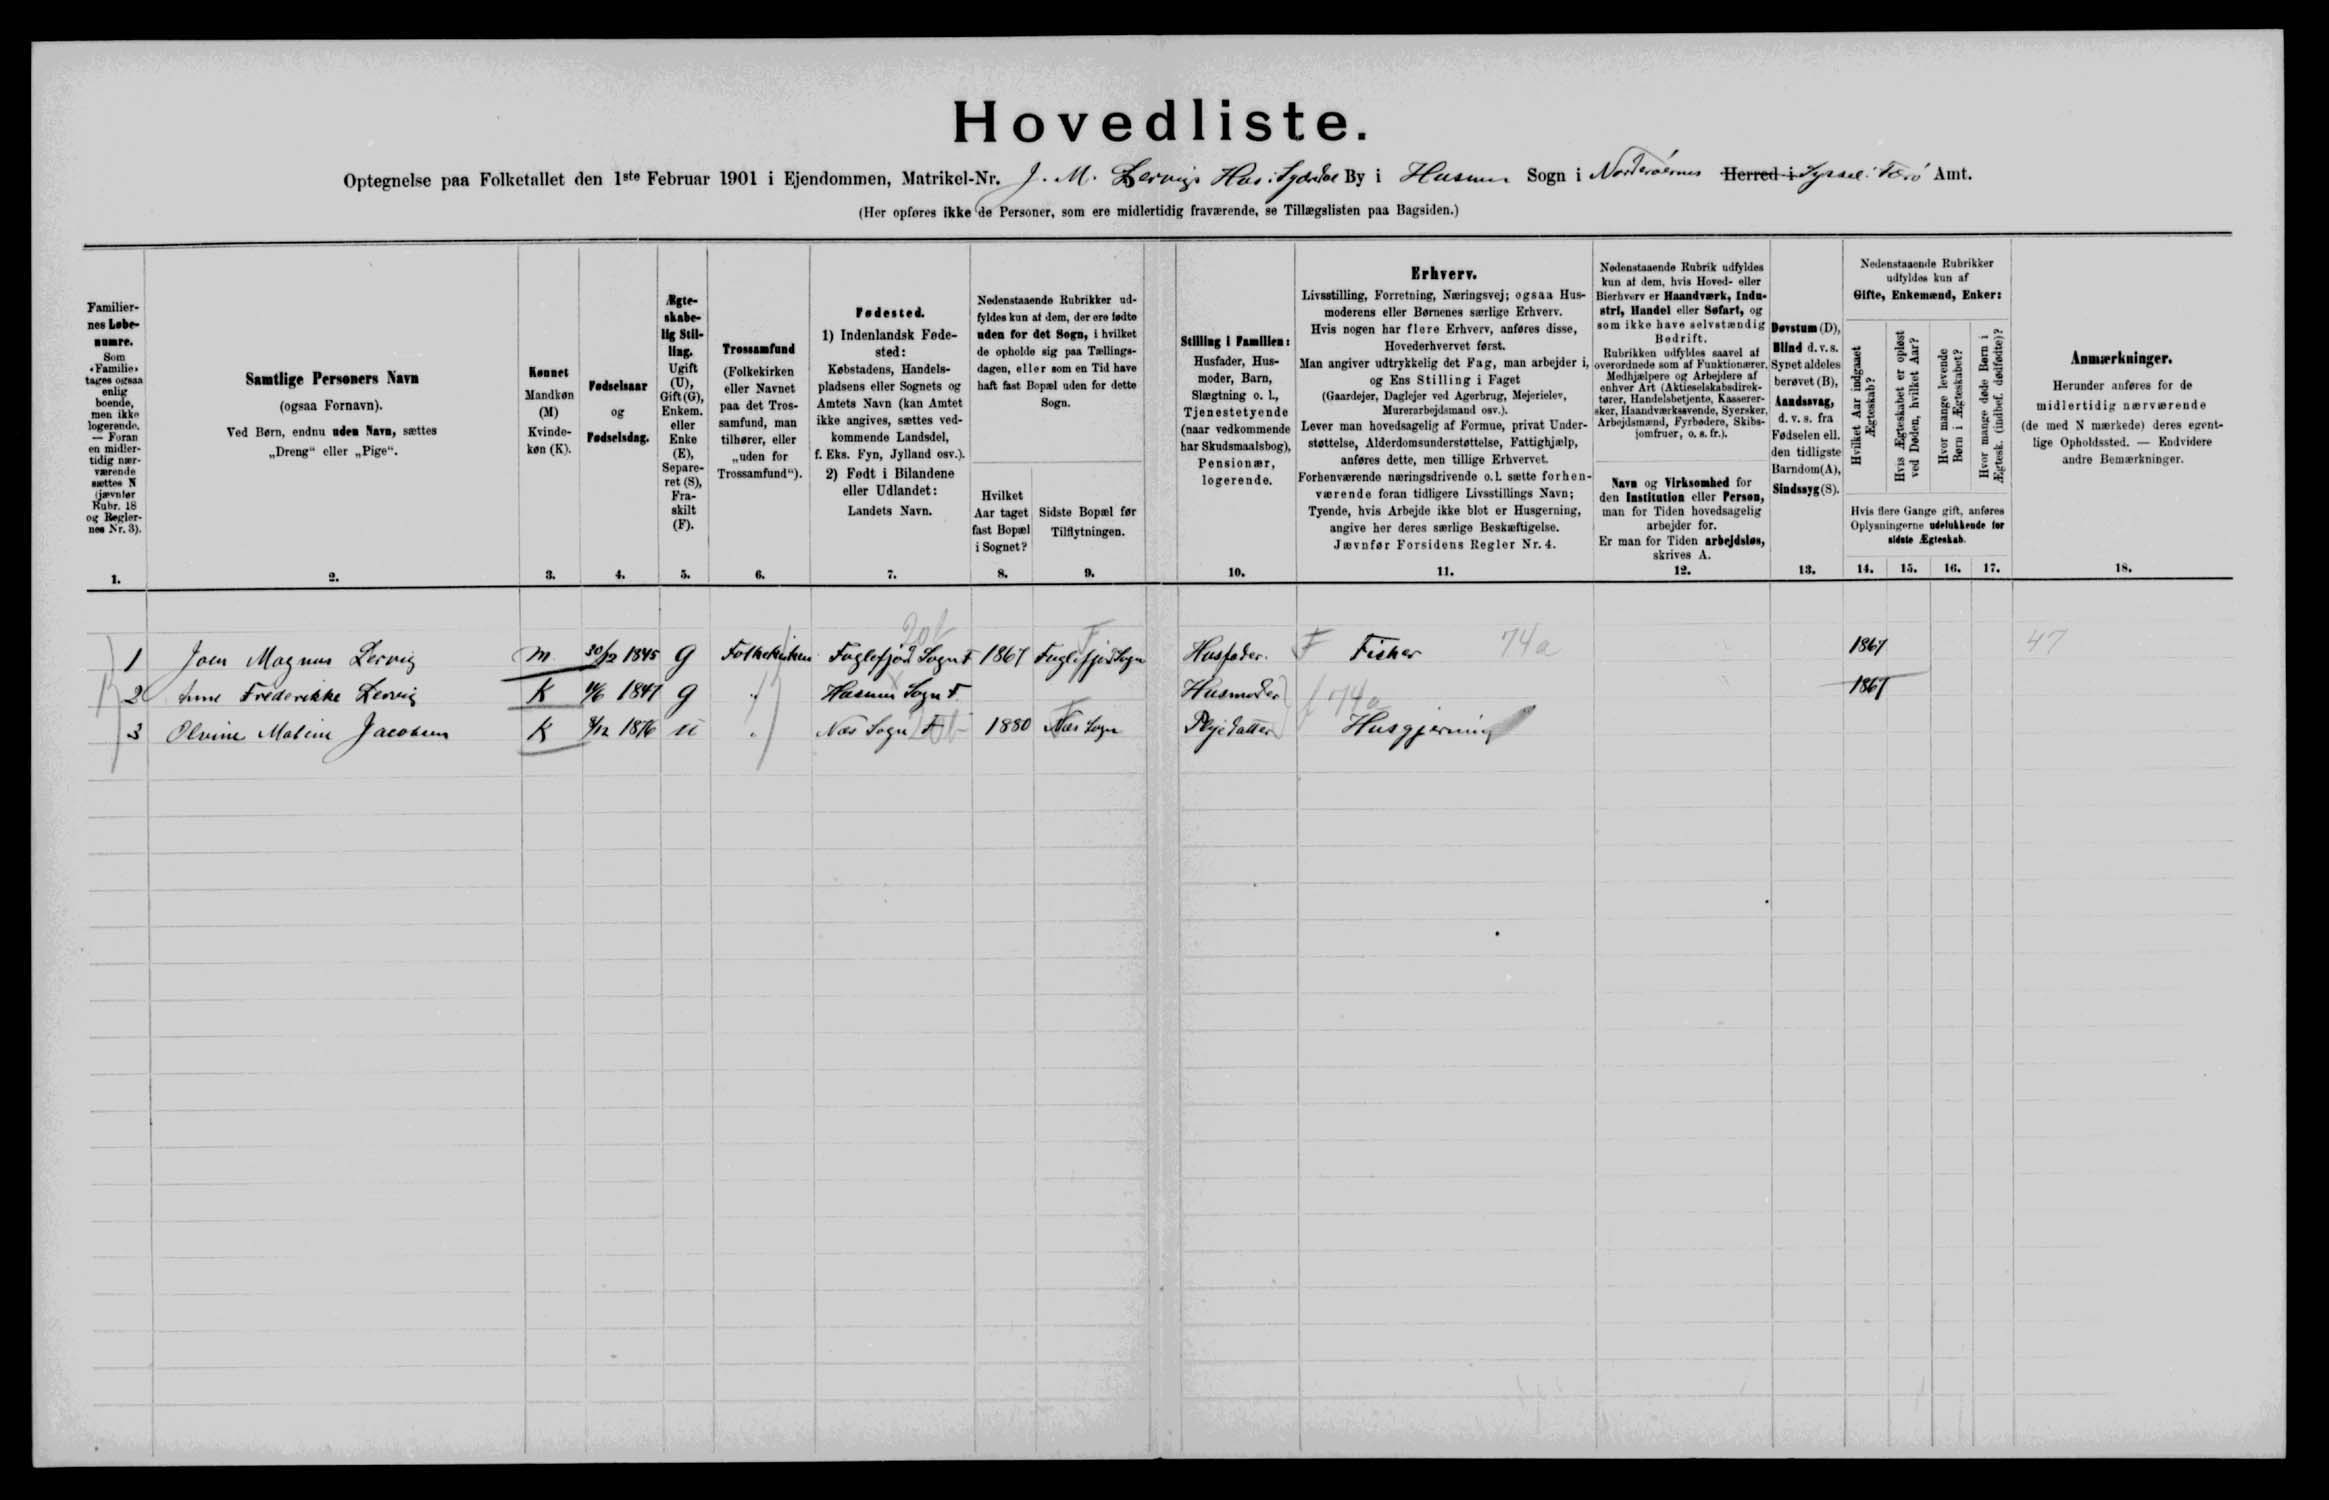 Hovedliste.
Optegnelse paa Folketallet den 1ste Februar 1901 i Ejendommen, Matrikel-Nr. J. M. Lervigs Hus i Syderdal By i Husum Sogn i Norderöernes Herred i Syssel: Færö Amt.
(Her opføres ikke de Personer, som ere midlertidig fraværende, se Tillægslisten paa Bagsiden.)
Familier-
nes Løbe-
numre.
Som
«Familie»
tages ogsaa
enlig
boende,
men ikke
logerende.
— Foran
en midler-
tidig nær-
værende
sættes N
(jævnfør
Rubr. 18
og Regler-
nes Nr. 3).
1.
Samtlige Personers Navn
(ogsaa Fornavn).
Ved Børn, endnu uden Navn, sættes
„Dreng“ eller „Pige“.
2.
Kønnet
Mandkøn
(M)
Kvinde-
køn (K).
3.
Fødselsaar
og
Fødselsdag.
4.
Ægte-
skabe-
lig Stil-
ling.
Ugift
(U),
Gift (G),
Enkem.
eller
Enke
(E),
Separe-
ret (S),
Fra-
skilt
(F).
5.
Trossamfund
(Folkekirken
eller Navnet
paa det Tros-
samfund, man
tilhører, eller
„uden for
Trossamfund“).
6.
Fødested.
1) Indenlandsk Føde-
sted:
Købstadens, Handels-
pladsens eller Sognets og
Amtets Navn (kan Amtet
ikke angives, sættes ved-
kommende Landsdel,
f. Eks. Fyn, Jylland osv.).
2) Født i Bilandene
eller Udlandet:
Landets Navn.
7.
Nedenstaaende Rubrikker ud-
fyldes kun af dem, der ere fødte
uden for det Sogn, i hvilket
de opholde sig paa Tællings-
dagen, eller som en Tid have
haft fast Bopæl uden for dette
Sogn.
Hvilket
Aar taget
fast Bopæl
i Sognet?
8.
Sidste Bopæl før
Tilflytningen.
9.
Stilling i Familien:
Husfader, Hus-
moder, Barn,
Slægtning o. l.,
Tjenestetyende
(naar vedkommende
har Skudsmaalsbog),
Pensionær,
logerende.
10.
Erhverv.
Livsstilling, Forretning, Næringsvej; ogsaa Hus-
moderens eller Børnenes særlige Erhverv.
Hvis nogen har flere Erhverv, anføres disse,
Hovederhvervet først.
Man angiver udtrykkelig det Fag, man arbejder i,
og Ens Stilling i Faget
(Gaardejer, Daglejer ved Agerbrug, Mejerielev,
Murerarbejdsmand osv.).
Lever man hovedsagelig af Formue, privat Under-
støttelse, Alderdomsunderstøttelse, Fattighjælp,
anføres dette, men tillige Erhvervet.
Forhenværende næringsdrivende o. l. sætte forhen-
værende foran tidligere Livsstillings Navn;
Tyende, hvis Arbejde ikke blot er Husgerning,
angive her deres særlige Beskæftigelse.
Jævnfør Forsidens Regler Nr. 4.
11.
Nedenstaaende Rubrik udfyldes
kun af dem, hvis Hoved- eller
Bierhverv er Haandværk, Indu-
stri, Handel eller Søfart, og
som ikke have selvstændig
Bedrift.
Rubrikken udfyldes saavel af
overordnede som af Funktionærer,
Medhjælpere og Arbejdere af
enhver Art (Aktieselskabsdirek-
tører, Handelsbetjente, Kasserer-
sker, Haandværkssvende, Syersker,
Arbejdsmænd, Fyrbødere, Skibs-
jomfruer, o. s. fr.).
Navn og Virksomhed for
den Institution eller Person,
man for Tiden hovedsagelig
arbejder for.
Er man for Tiden arbejdsløs,
skrives A.
12.
Døvstum (D),
Blind d. v. s.
Synet aldeles
berøvet (B),
Aandssvag,
d. v. s. fra
Fødselen ell.
den tidligste
Barndom (A),
Sindssyg (S).
13.
Nedenstaaende Rubrikker
udfyldes kun af
Gifte, Enkemænd, Enker:
Hvilket Aar indgaaet
Ægteskab?
Hvis Ægteskabet er opløst
ved Døden, hvilket Aar?
Hvor mange levende
Børn i Ægteskabet?
Hvor mange døde Børn i
Ægtesk. (indbef. dødfødte)?
Hvis flere Gange gift, anføres
Oplysningerne udelukkende for
sidste Ægteskab.
14. 15. 16. 17.
Anmærkninger.
Herunder anføres for de
midlertidig nærværende
(de med N mærkede) deres egent-
lige Opholdssted. — Endvidere
andre Bemærkninger.
18.
1 Joen Magnus Lervig M 30/12 1845 G Folkekirken Fuglefjord Sogn F 1867 Fuglefjord Sogn Husfader. F Fisker 74a 1867 47
2 Anne Frederikke Lervig K 1847 G " Husum Sogn F Husmoder 74a 1867
3 Olvine Maline Jacobsen K 8/12 1876 U " Næs Sogn F 1880 Næs Sogn Plejedatter Husgjerning